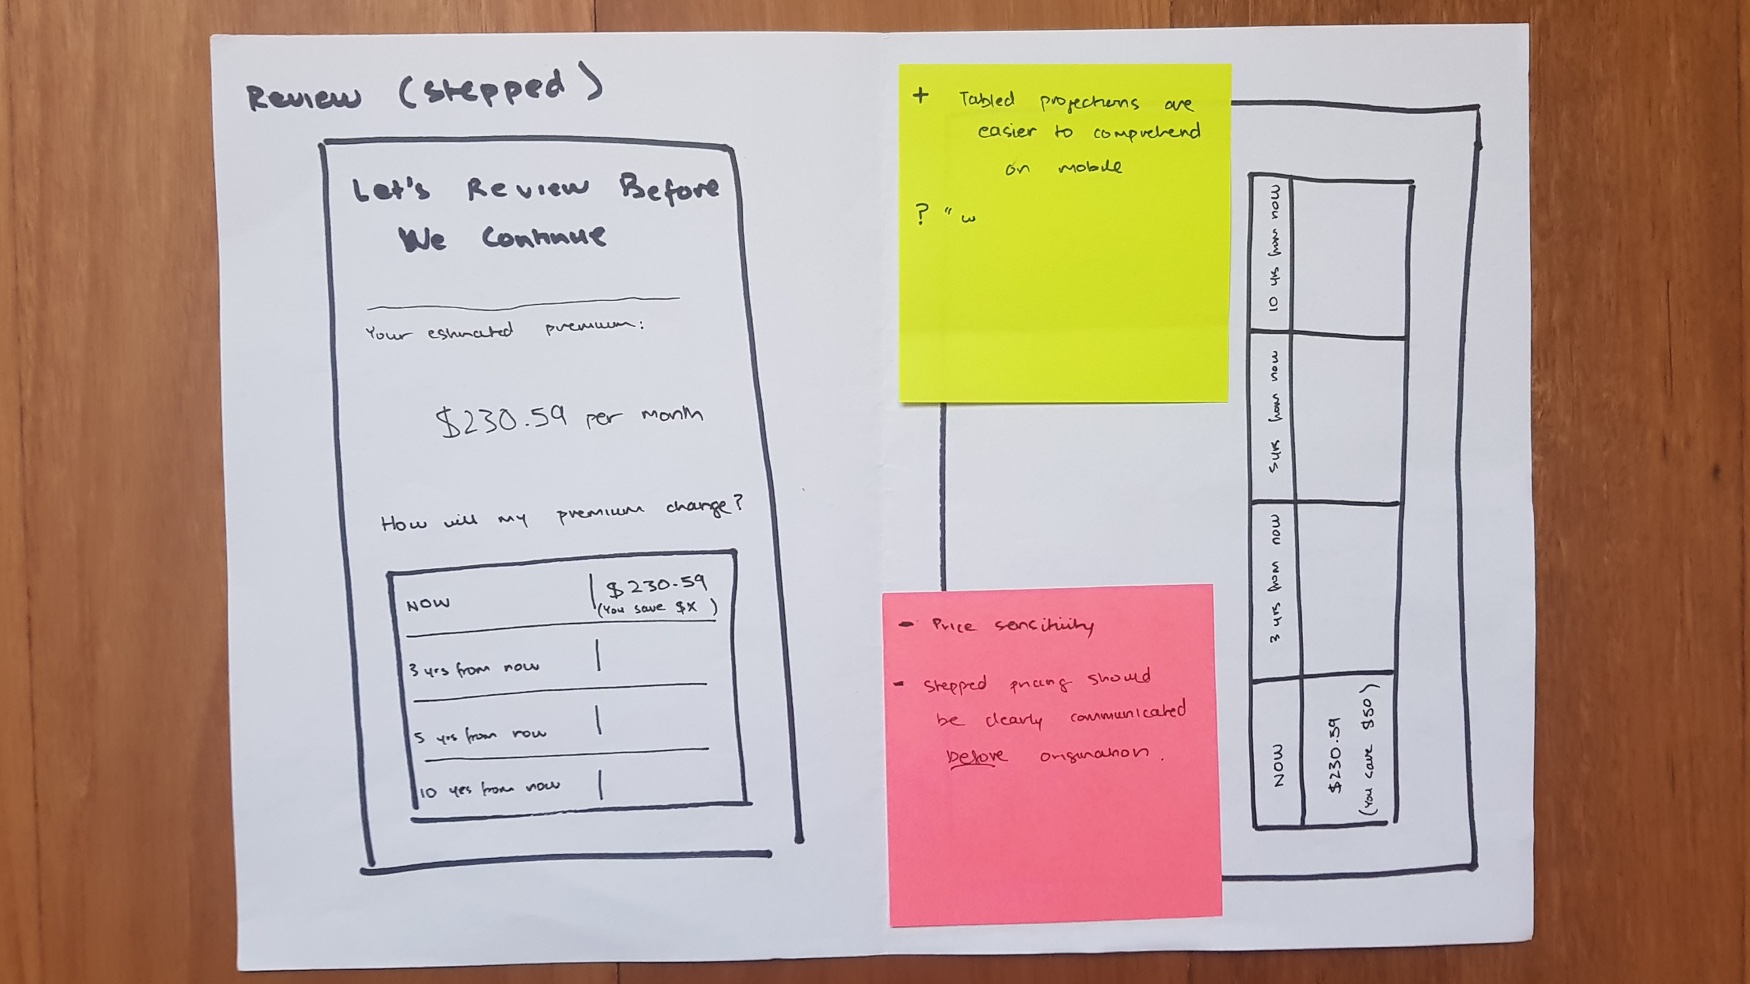 Review (stepped)
Let's Review Before
We Continue
Your estimated premium:
$230.59 per month
How will my premium change?
NOW $230.59
(You save $X)
3 yrs from now
5 yrs from now
10 yrs from now
+ Tabled projections are
easier to comprehend
on mobile
? "w
- Price sensitivity
- Stepped pricing should
be clearly communicated
before origination.
10 yrs from now
5 yrs from now
3 yrs from now
NOW
$230.59
(You save $50)